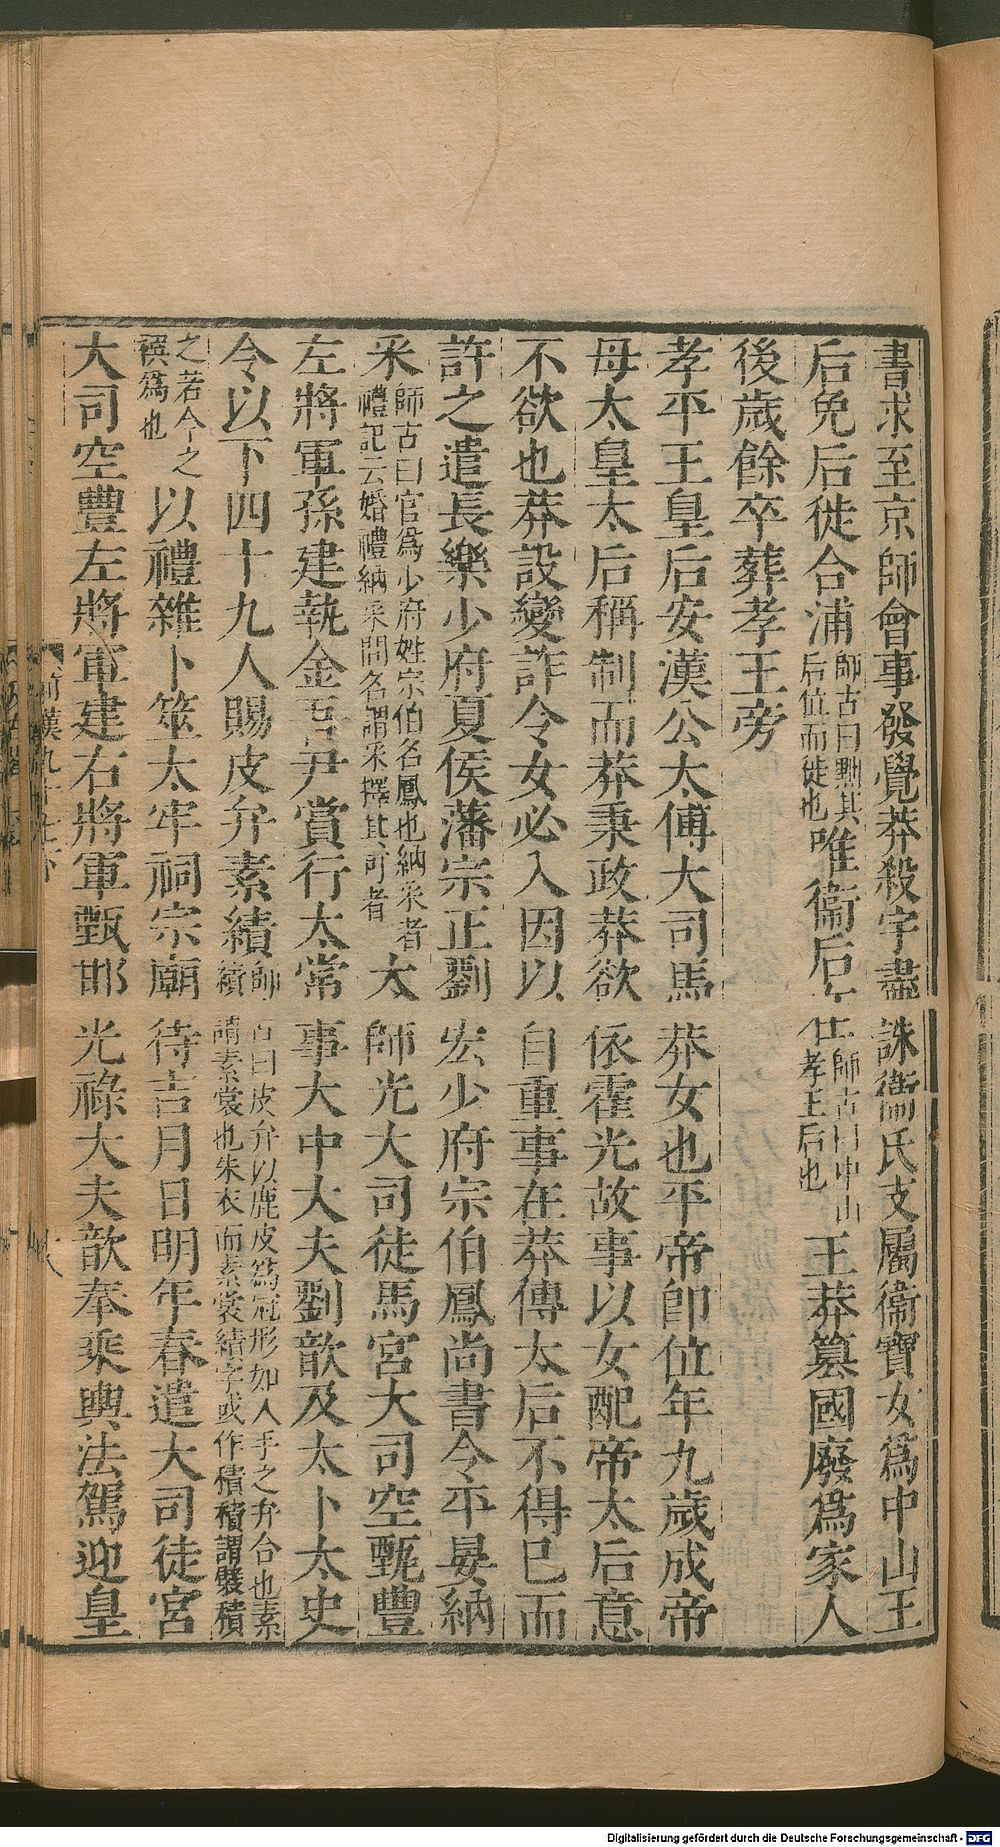 書求至京師會事發覺莽殺宇盡誅衞氏支屬衞寶女爲中山王
后免后徙合浦師古曰黜其后位而徙也唯衞后在師古曰中山孝王后也王莽篡國廢爲家人
後歲餘卒葬孝王旁
孝平王皇后安漢公太傅大司馬莽女也平帝卽位年九歲成帝
母太皇太后稱制而莽秉政莽欲依霍光故事以女配帝太后意
不欲也莽設變詐令女必入因以自重事在莽傳太后不得已而
許之遣長樂少府夏侯藩宗正劉宏少府宗伯鳳尚書令平晏納
采師古曰官爲少府姓宗伯名鳳也納采者禮記云婚禮納采問名謂采擇其可者太師光大司徒馬宮大司空甄豐
左將軍孫建執金吾尹賞行太常事大中大夫劉歆及太卜太史
令以下四十九人賜皮弁素績師古曰皮弁以鹿皮爲冠形如人手之弁合也素績謂素裳也朱衣而素裳績字或作積積謂襞積
之若今之襈爲也以禮雜卜筮太牢祠宗廟待吉月日明年春遣大司徒宮
大司空豐左將軍建右將軍甄邯光祿大夫歆奉乘輿法駕迎皇
前漢九十七下
十八
Digitalisierung gefördert durch die Deutsche Forschungsgemeinschaft - DFG